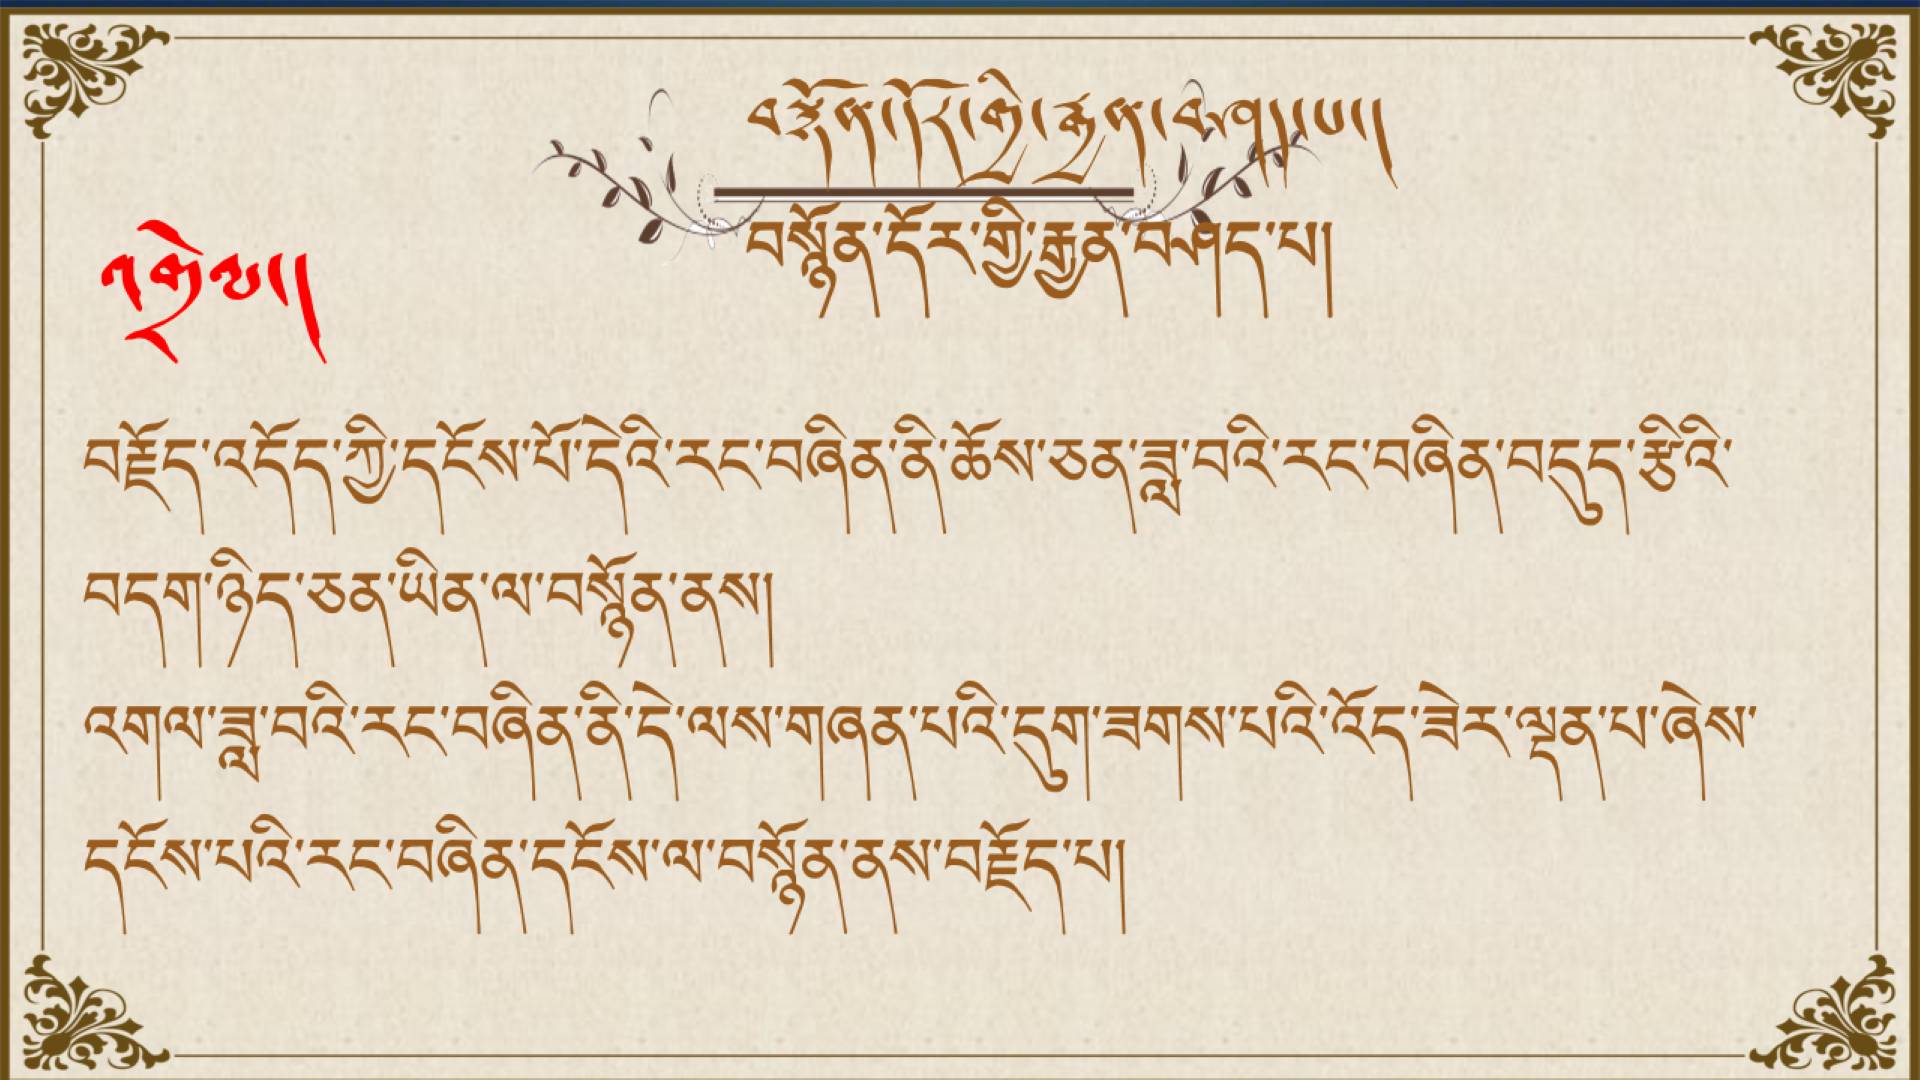 བསྙོན་དོར་གྱི་རྒྱན་བཤད་པ།
བསྙོན་དོར་གྱི་རྒྱན་བཤད་པ།
འགྲེལ།
བརྗོད་འདོད་ཀྱི་དངོས་པོ་དེའི་རང་བཞིན་ནི་ཆོས་ཅན་ཟླ་བའི་རང་བཞིན་བདུད་རྩིའི་
བདག་ཉིད་ཅན་ཡིན་ལ་བསྙོན་ནས།
འགལ་ཟླ་བའི་རང་བཞིན་ནི་དེ་ལས་གཞན་པའི་དུག་ཟགས་པའི་འོད་ཟེར་ལྡན་པ་ཞེས་
དངོས་པའི་རང་བཞིན་དངོས་ལ་བསྙོན་ནས་བརྗོད་པ།